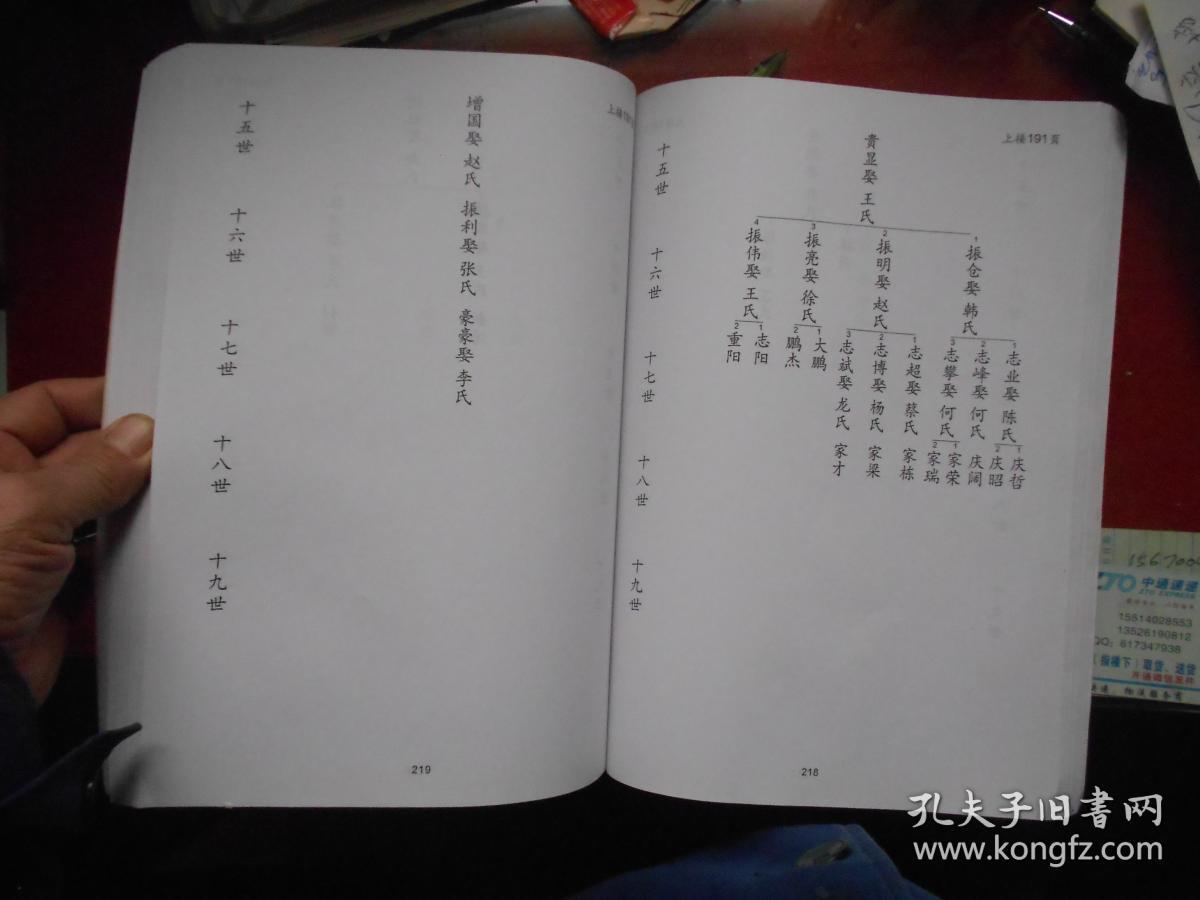 上接191頁
貴显娶 王氏
1 振仓娶 韩氏
1 志业娶 陈氏
1 庆哲
2 庆昭
2 志峰娶 何氏 庆闹
3 志攀娶 何氏
1 家荣
2 家瑞
2 振明娶 赵氏
1 志超娶 蔡氏 家栋
2 志博娶 杨氏 家梁
3 志斌娶 龙氏 家才
3 振亮娶 徐氏
1 大鹏
2 鹏杰
4 振伟娶 王氏
1 志阳
2 重阳
十五世
十六世
十七世
十八世
十九世
218
上接191
增国娶 赵氏 振利娶 张氏 豪豪娶 李氏
十五世
十六世
十七世
十八世
十九世
219
中通速递
ZTO EXPRESS
15514028553
13526190812
QQ: 617347938
取货、送货
孔夫子旧書网
www.kongfz.com